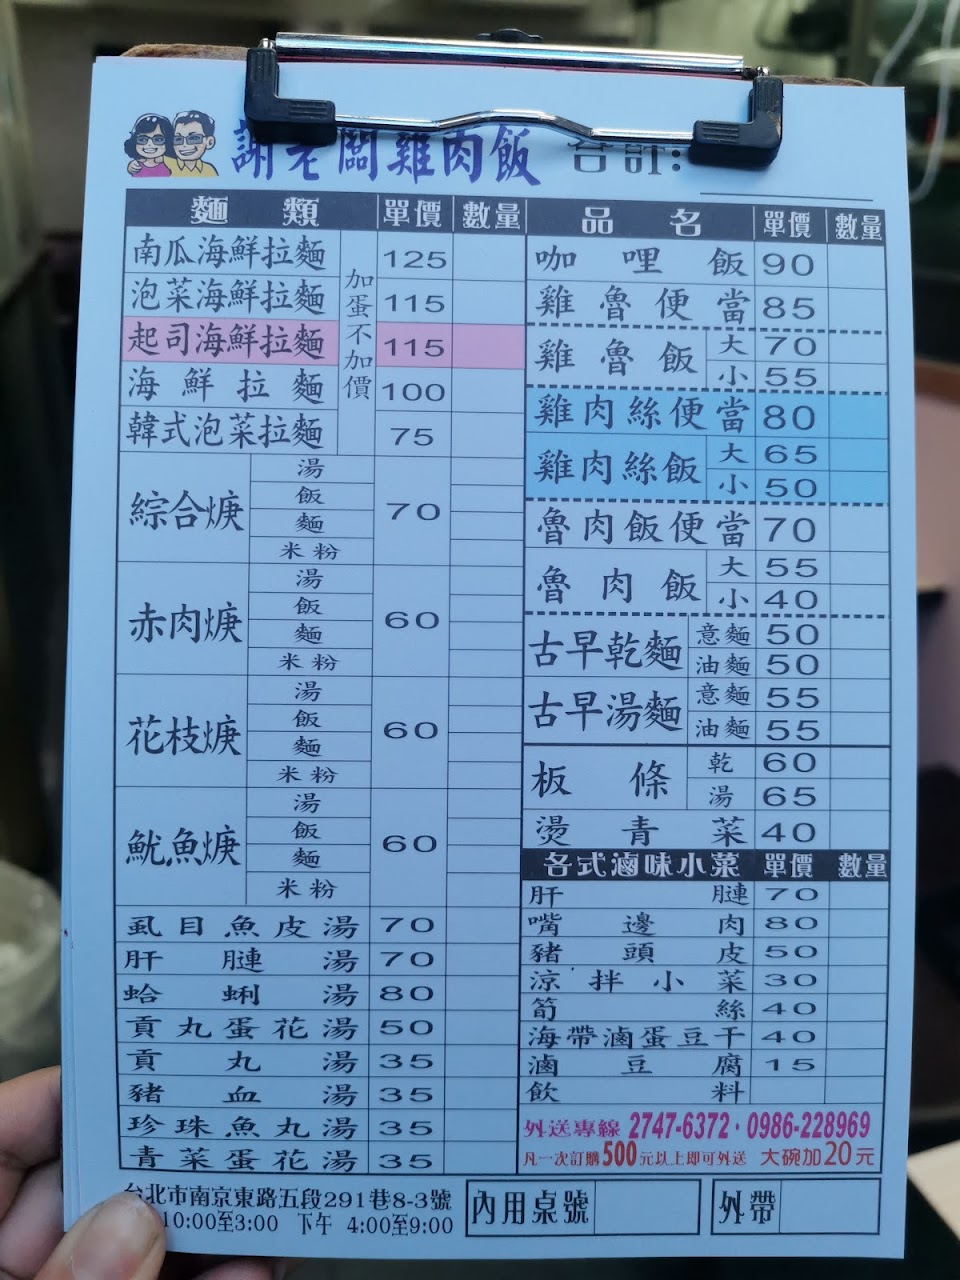 謝老闆雞肉飯 合計:
麵類 單價 數量
南瓜海鮮拉麵 125
泡菜海鮮拉麵 115
起司海鮮拉麵 115
海鮮拉麵 100
韓式泡菜拉麵 75
加蛋不加價
綜合焿 湯 飯 麵 米粉 70
赤肉焿 湯 飯 麵 米粉 60
花枝焿 湯 飯 麵 米粉 60
魷魚焿 湯 飯 麵 米粉 60
虱目魚皮湯 70
肝膧湯 70
蛤蜊湯 80
貢丸蛋花湯 50
貢丸湯 35
豬血湯 35
珍珠魚丸湯 35
青菜蛋花湯 35
品名 單價 數量
咖哩飯 90
雞魯便當 85
雞魯飯 大 70
小 55
雞肉絲便當 80
雞肉絲飯 大 65
小 50
魯肉飯便當 70
魯肉飯 大 55
小 40
古早乾麵 意麵 50
油麵 50
古早湯麵 意麵 55
油麵 55
板條 乾 60
湯 65
燙青菜 40
各式滷味小菜 單價 數量
肝膧 70
嘴邊肉 80
豬頭皮 50
涼拌小菜 30
筍絲 40
海帶滷蛋豆干 40
滷豆腐 15
飲料
外送專線 2747-6372・0986-228969
凡一次訂購500元以上即可外送 大碗加20元
台北市南京東路五段291巷8-3號
10:00至3:00 下午 4:00至9:00
內用桌號
外帶